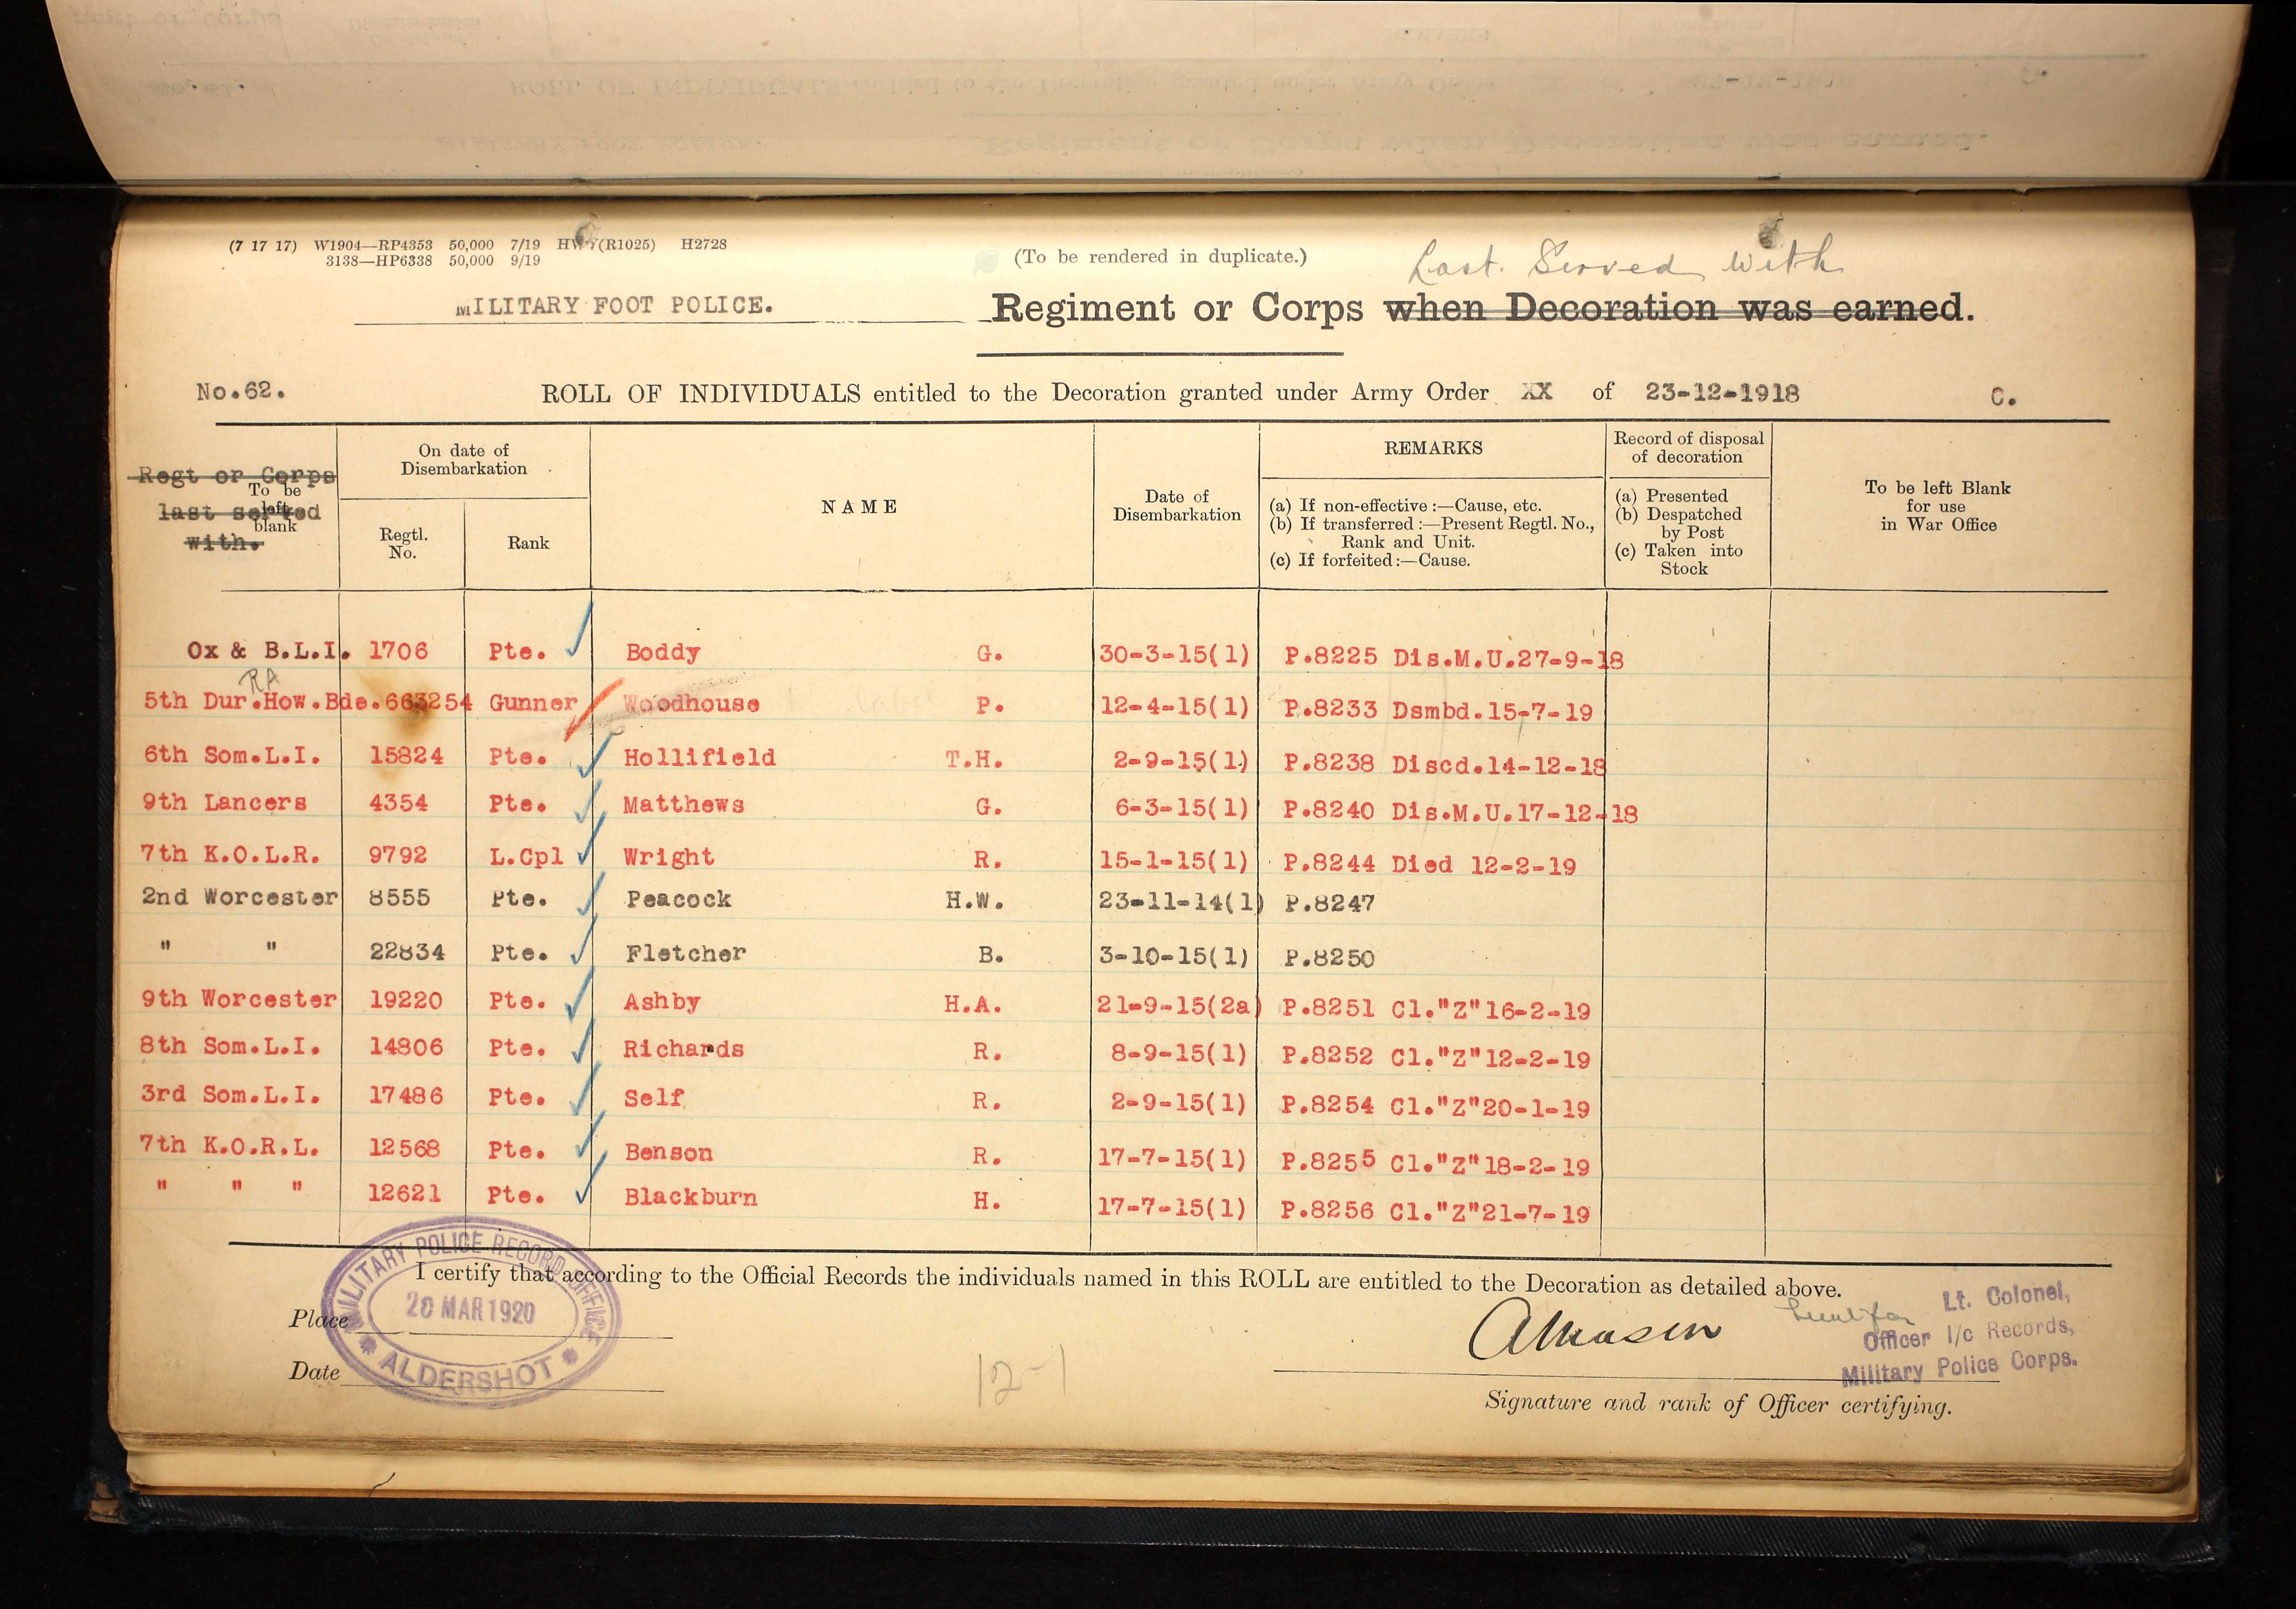 (7 17 17) W1904—RP4353 50,000 7/19 HW (R1025) H2728
3138—HP6338 50,000 9/19
(To be rendered in duplicate.)
Last. Served With
MILITARY FOOT POLICE. Regiment or Corps when Decoration was earned.
No.62. ROLL OF INDIVIDUALS entitled to the Decoration granted under Army Order XX of 23-12-1918 C.
Regt or Corps
To be
last served
left
blank
with.
On date of
Disembarkation
Regtl.
No.
Rank
NAME
Date of
Disembarkation
REMARKS
(a) If non-effective :—Cause, etc.
(b) If transferred :—Present Regtl. No.,
Rank and Unit.
(c) If forfeited :—Cause.
Record of disposal
of decoration
(a) Presented
(b) Despatched
by Post
(c) Taken into
Stock
To be left Blank
for use
in War Office
Ox & B.L.I. 1706 Pte. Boddy G. 30-3-15(1) P.8225 Dis.M.U.27-9-18
RA
5th Dur.How.Bde.663254 Gunner Woodhouse P. 12-4-15(1) P.8233 Dsmbd.15-7-19
6th Som.L.I. 15824 Pte. Hollifield T.H. 2-9-15(1) P.8238 Discd.14-12-18
9th Lancers 4354 Pte. Matthews G. 6-3-15(1) P.8240 Dis.M.U.17-12-18
7th K.O.L.R. 9792 L.Cpl Wright R. 15-1-15(1) P.8244 Died 12-2-19
2nd Worcester 8555 Pte. Peacock H.W. 23-11-14(1) P.8247
" " 22834 Pte. Fletcher B. 3-10-15(1) P.8250
9th Worcester 19220 Pte. Ashby H.A. 21-9-15(2a) P.8251 Cl."Z"16-2-19
8th Som.L.I. 14806 Pte. Richards R. 8-9-15(1) P.8252 Cl."Z"12-2-19
3rd Som.L.I. 17486 Pte. Self R. 2-9-15(1) P.8254 Cl."Z"20-1-19
7th K.O.R.L. 12568 Pte. Benson R. 17-7-15(1) P.8255 Cl."Z"18-2-19
" " " 12621 Pte. Blackburn H. 17-7-15(1) P.8256 Cl."Z"21-7-19
I certify that according to the Official Records the individuals named in this ROLL are entitled to the Decoration as detailed above.
MILITARY POLICE RECORD OFFICE
20 MAR 1920
ALDERSHOT
Place
Date
12-1
Lt. Colonel,
Officer I/c Records,
Military Police Corps.
Signature and rank of Officer certifying.